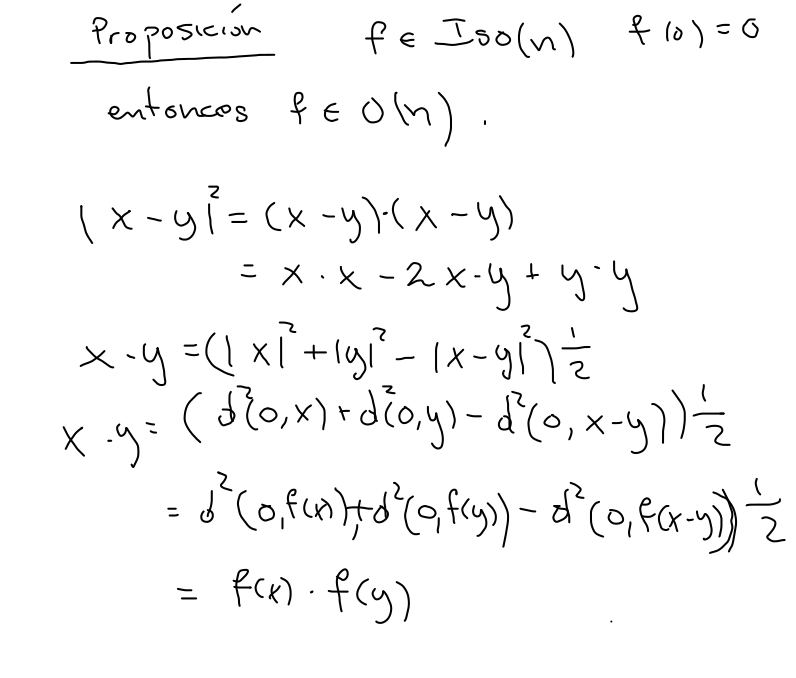 Proposición f ∈ Iso(n) f(0) = 0
entonces f ∈ O(n).
|x - y|² = (x - y)·(x - y)
= x · x - 2 x · y + y · y
x · y = (|x|² + |y|² - |x - y|²) 1/2
x · y = (d²(0, x) + d²(0, y) - d²(0, x - y)) 1/2
= d²(0, f(x)) + d²(0, f(y)) - d²(0, f(x-y))) 1/2
= f(x) · f(y)